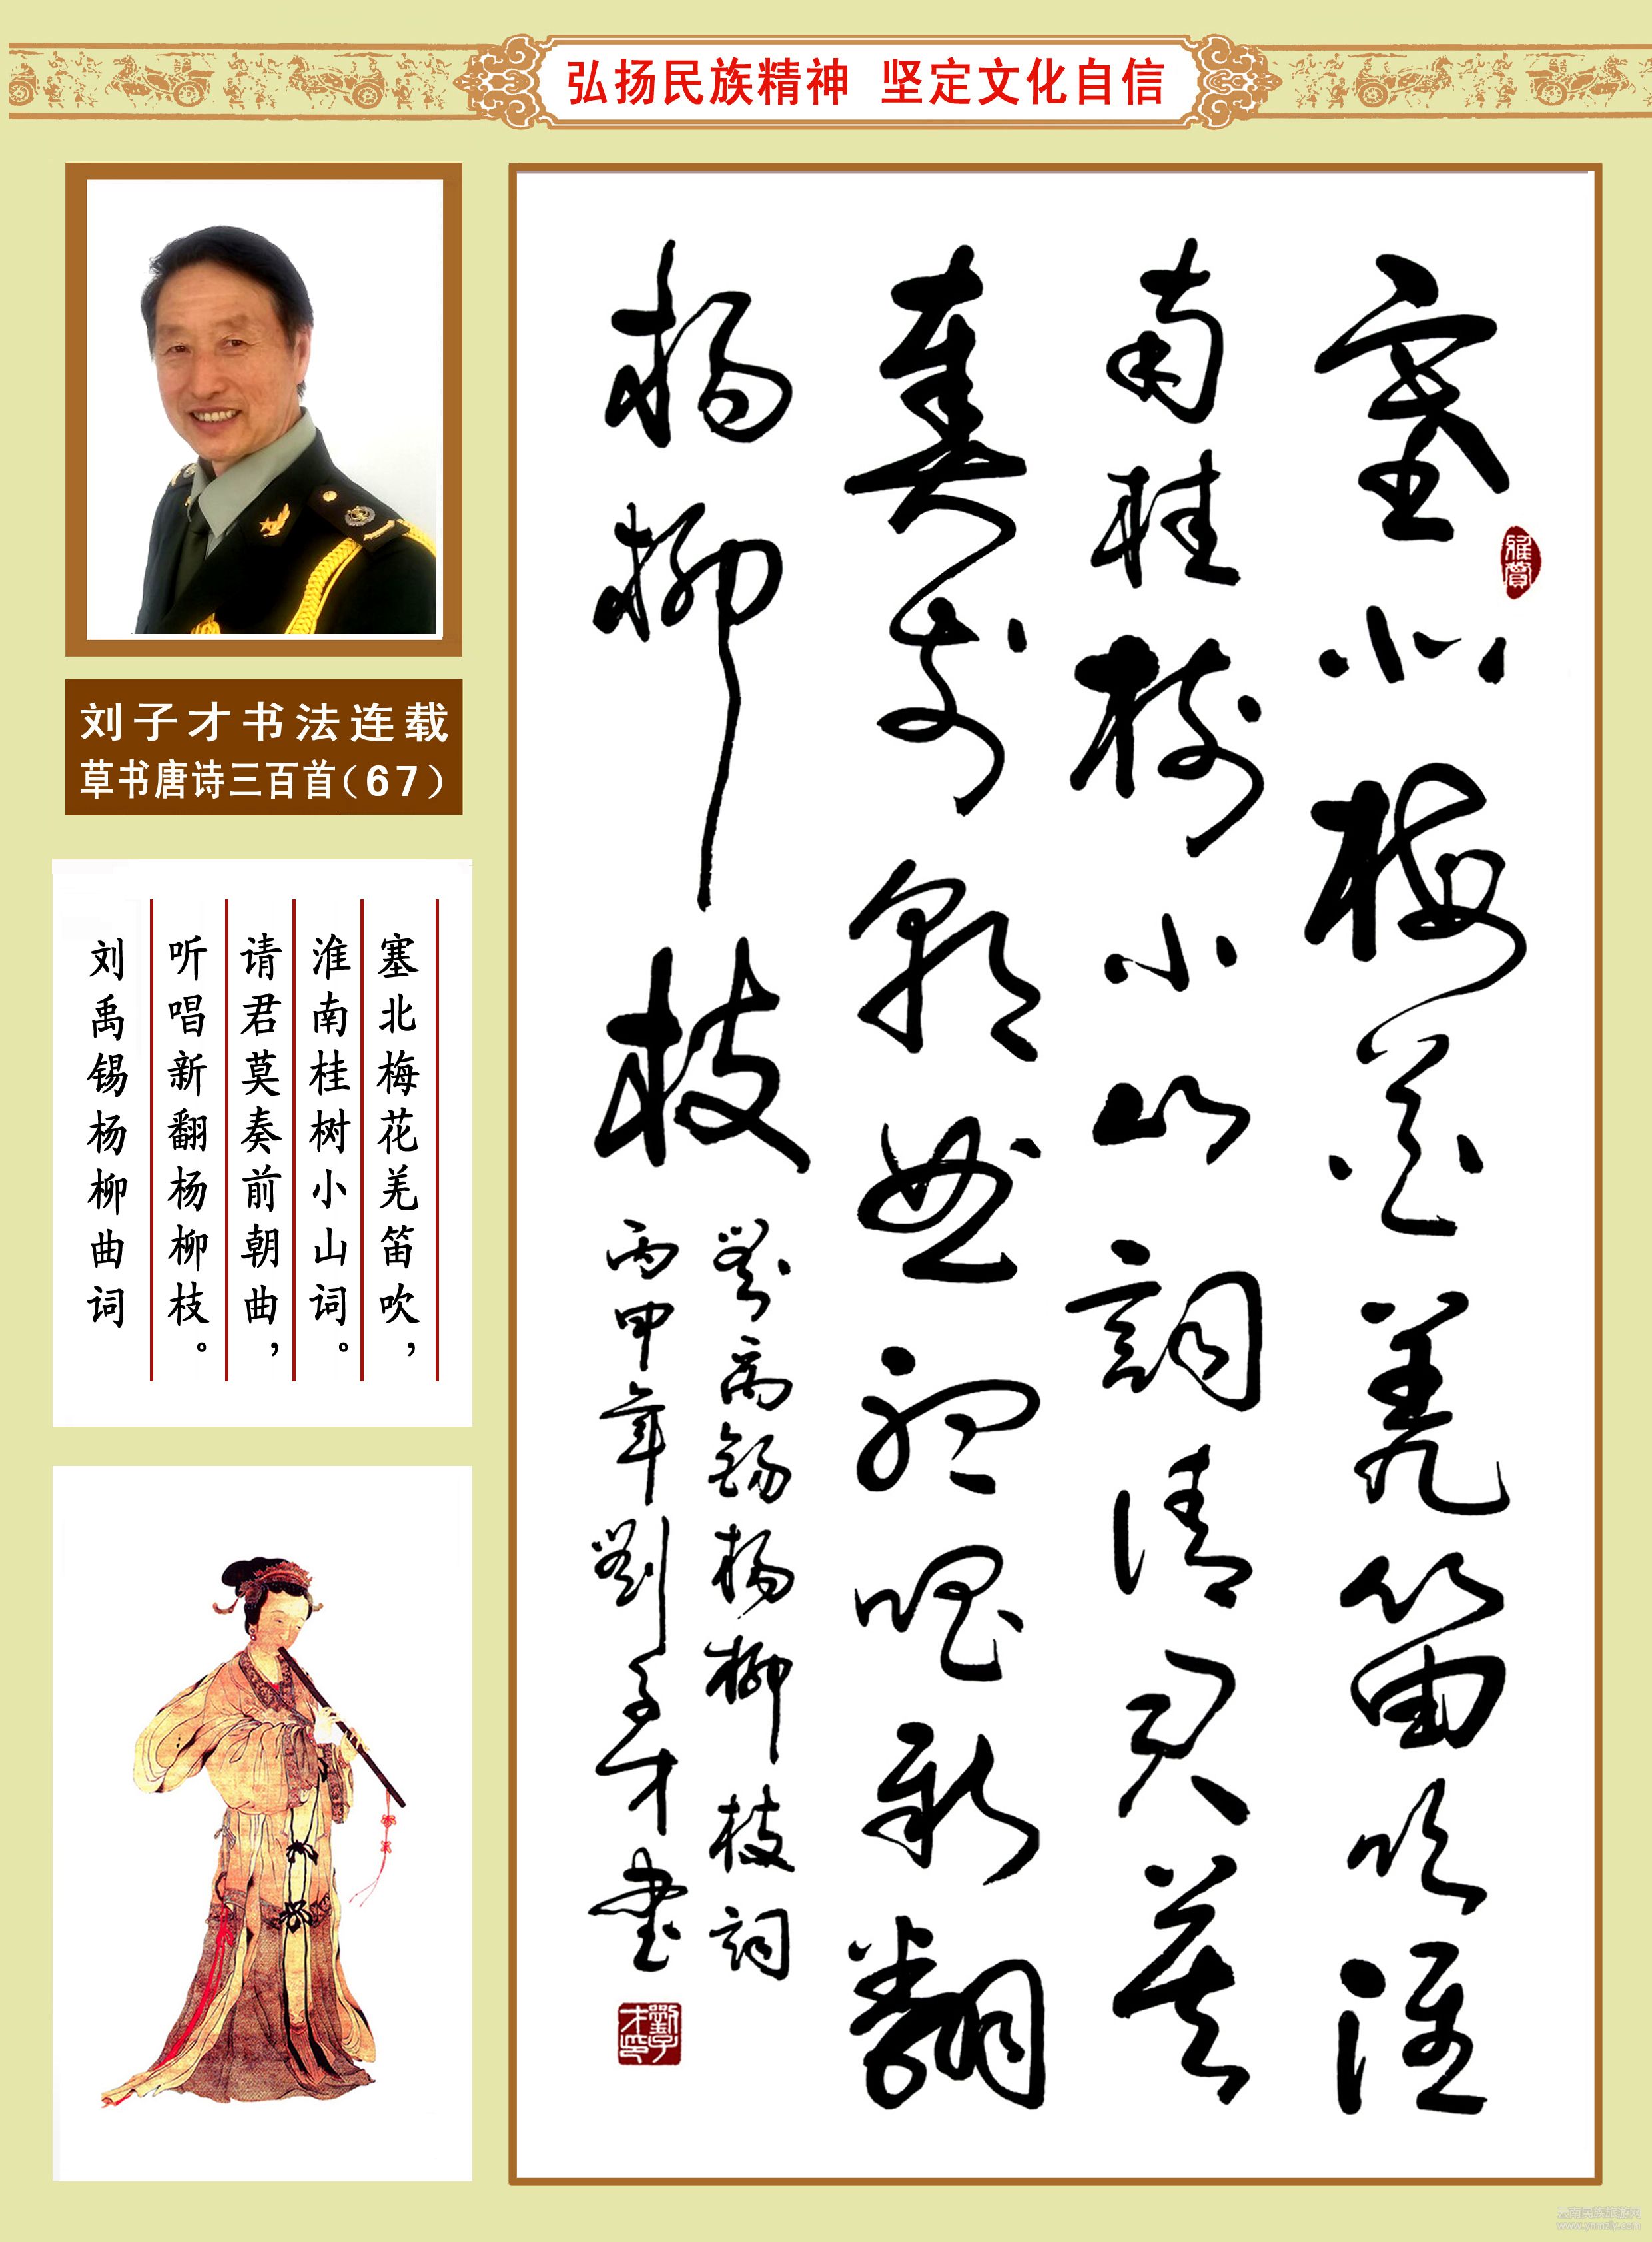 弘扬民族精神 坚定文化自信
刘子才书法连载
草书唐诗三百首（67）
塞北梅花羌笛吹，
淮南桂树小山词。
请君莫奏前朝曲，
听唱新翻杨柳枝。
刘禹锡杨柳曲词
塞北梅花羌笛吹淮
南桂树小山詞請君莫
奏前朝曲聽唱新翻
楊柳枝
劉禹錫楊柳枝詞
丙申年劉子才書
雅賞
劉子才印